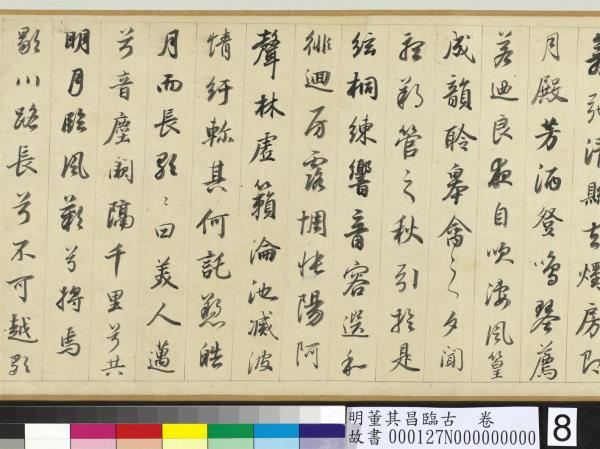 弛清縣去燭房即
月殿芳酒登鳴琴薦
若迺良夜自凄風篁
成韻聆皋禽之夕聞
聽朔管之秋引於是
絃桐練響音容選和
徘迴房露惆悵陽阿
聲林虛籟淪池滅波
情紆軫其何託愬皓
月而長歌〻曰美人邁
兮音塵闕隔千里兮共
明月臨風歎兮將焉
歇川路長兮不可越歌
明董其昌臨古　卷
故書 000127N000000000
8